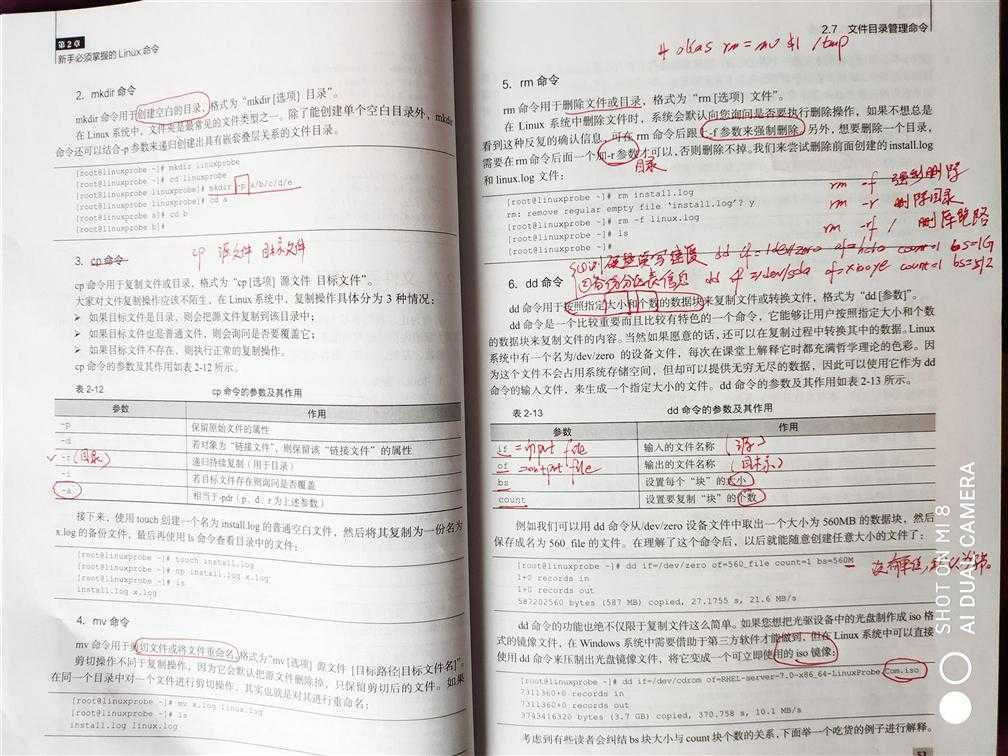 第2章
新手必须掌握的Linux命令
2. mkdir 命令
mkdir 命令用于创建空白的目录，格式为“mkdir [选项] 目录”。
在 Linux 系统中，文件夹是最常见的文件类型之一。除了能创建单个空白目录外，mkdir
命令还可以结合-p 参数来递归创建出具有嵌套叠层关系的文件目录。
[root@linuxprobe ~]# mkdir linuxprobe
[root@linuxprobe ~]# cd linuxprobe
[root@linuxprobe linuxprobe]# mkdir -p a/b/c/d/e
[root@linuxprobe linuxprobe]# cd a
[root@linuxprobe a]# cd b
[root@linuxprobe b]#
3. cp 命令
cp 源文件 目标文件
cp 命令用于复制文件或目录，格式为“cp [选项] 源文件 目标文件”。
大家对文件复制操作应该不陌生，在 Linux 系统中，复制操作具体分为 3 种情况：
➢ 如果目标文件是目录，则会把源文件复制到该目录中；
➢ 如果目标文件也是普通文件，则会询问是否要覆盖它；
➢ 如果目标文件不存在，则执行正常的复制操作。
cp 命令的参数及其作用如表 2-12 所示。
表 2-12 cp 命令的参数及其作用
参数 作用
-p 保留原始文件的属性
-d 若对象为“链接文件”，则保留该“链接文件”的属性
✓ -r (目录) 递归持续复制（用于目录）
-i 若目标文件存在则询问是否覆盖
-a 相当于-pdr（p、d、r 为上述参数）
接下来，使用 touch 创建一个名为 install.log 的普通空白文件，然后将其复制为一份名为
x.log 的备份文件，最后再使用 ls 命令查看目录中的文件：
[root@linuxprobe ~]# touch install.log
[root@linuxprobe ~]# cp install.log x.log
[root@linuxprobe ~]# ls
install.log x.log
4. mv 命令
mv 命令用于剪切文件或将文件重命名，格式为“mv [选项] 源文件 [目标路径|目标文件名]”。
剪切操作不同于复制操作，因为它会默认把源文件删除掉，只保留剪切后的文件。如果
在同一个目录中对一个文件进行剪切操作，其实也就是对其进行重命名：
[root@linuxprobe ~]# mv x.log linux.log
[root@linuxprobe ~]# ls
install.log linux.log
2.7 文件目录管理命令
# alias rm = mv $1 /tmp
5. rm 命令
rm 命令用于删除文件或目录，格式为“rm [选项] 文件”。
在 Linux 系统中删除文件时，系统会默认向您询问是否要执行删除操作，如果不想总是
看到这种反复的确认信息，可在 rm 命令后跟上-f 参数来强制删除。另外，想要删除一个目录，
需要在 rm 命令后面一个加-r 参数才可以，否则删除不掉。我们来尝试删除前面创建的 install.log
和 linux.log 文件：
目录
[root@linuxprobe ~]# rm install.log
rm: remove regular empty file 'install.log'? y
[root@linuxprobe ~]# rm -f linux.log
[root@linuxprobe ~]# ls
[root@linuxprobe ~]#
rm -f 强制删除
rm -r 删除目录
rm -rf / 删库跑路
硬盘读写速度 dd if=/dev/zero of=haha count=1 bs=1G
dd if=/dev/sda of=xiaoye count=1 bs=512
6. dd 命令
dd 命令用于按照指定大小和个数的数据块来复制文件或转换文件，格式为“dd [参数]”。
dd 命令是一个比较重要而且比较有特色的一个命令，它能够让用户按照指定大小和个数
的数据块来复制文件的内容。当然如果愿意的话，还可以在复制过程中转换其中的数据。Linux
系统中有一个名为/dev/zero 的设备文件，每次在课堂上解释它时都充满哲学理论的色彩。因
为这个文件不会占用系统存储空间，但却可以提供无穷无尽的数据，因此可以使用它作为 dd
命令的输入文件，来生成一个指定大小的文件。dd 命令的参数及其作用如表 2-13 所示。
表 2-13 dd 命令的参数及其作用
参数 作用
if =input file 输入的文件名称 (源)
of =output file 输出的文件名称 (目标)
bs 设置每个“块”的大小
count 设置要复制“块”的个数
例如我们可以用 dd 命令从/dev/zero 设备文件中取出一个大小为 560MB 的数据块，然后
保存成名为 560_file 的文件。在理解了这个命令后，以后就能随意创建任意大小的文件了：
[root@linuxprobe ~]# dd if=/dev/zero of=560_file count=1 bs=560M
1+0 records in
1+0 records out
587202560 bytes (587 MB) copied, 27.1755 s, 21.6 MB/s
dd 命令的功能也绝不仅限于复制文件这么简单。如果您想把光驱设备中的光盘制作成 iso 格
式的镜像文件，在 Windows 系统中需要借助于第三方软件才能做到，但在 Linux 系统中可以直接
使用 dd 命令来压制出光盘镜像文件，将它变成一个可立即使用的 iso 镜像：
[root@linuxprobe ~]# dd if=/dev/cdrom of=RHEL-server-7.0-x86_64-LinuxProbe.Com.iso
7311360+0 records in
7311360+0 records out
3743416320 bytes (3.7 GB) copied, 370.758 s, 10.1 MB/s
考虑到有些读者会纠结 bs 块大小与 count 块个数的关系，下面举一个吃货的例子进行解释。
SHOT ON MI 8
AI DUAL CAMERA